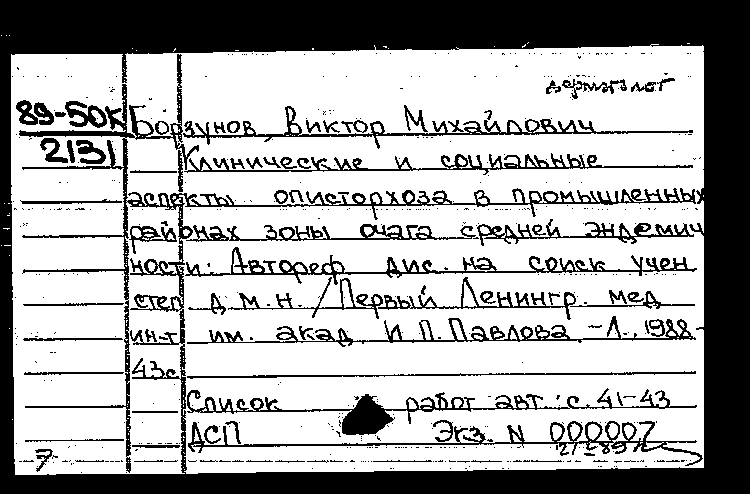 дерматолог
89-50К
2131
Борзунов, Виктор Михайлович
Клинические и социальные
аспекты описторхоза в промышленных
районах зоны очага средней эндемич
ности: Автореф. дис. на соиск учен
степ д.м.н. / Первый Ленингр. мед
ин-т им. акад. И.П. Павлова. -Л., 1988-
43с
Список работ авт.: с. 41-43
ДСП Экз. N 000007
7